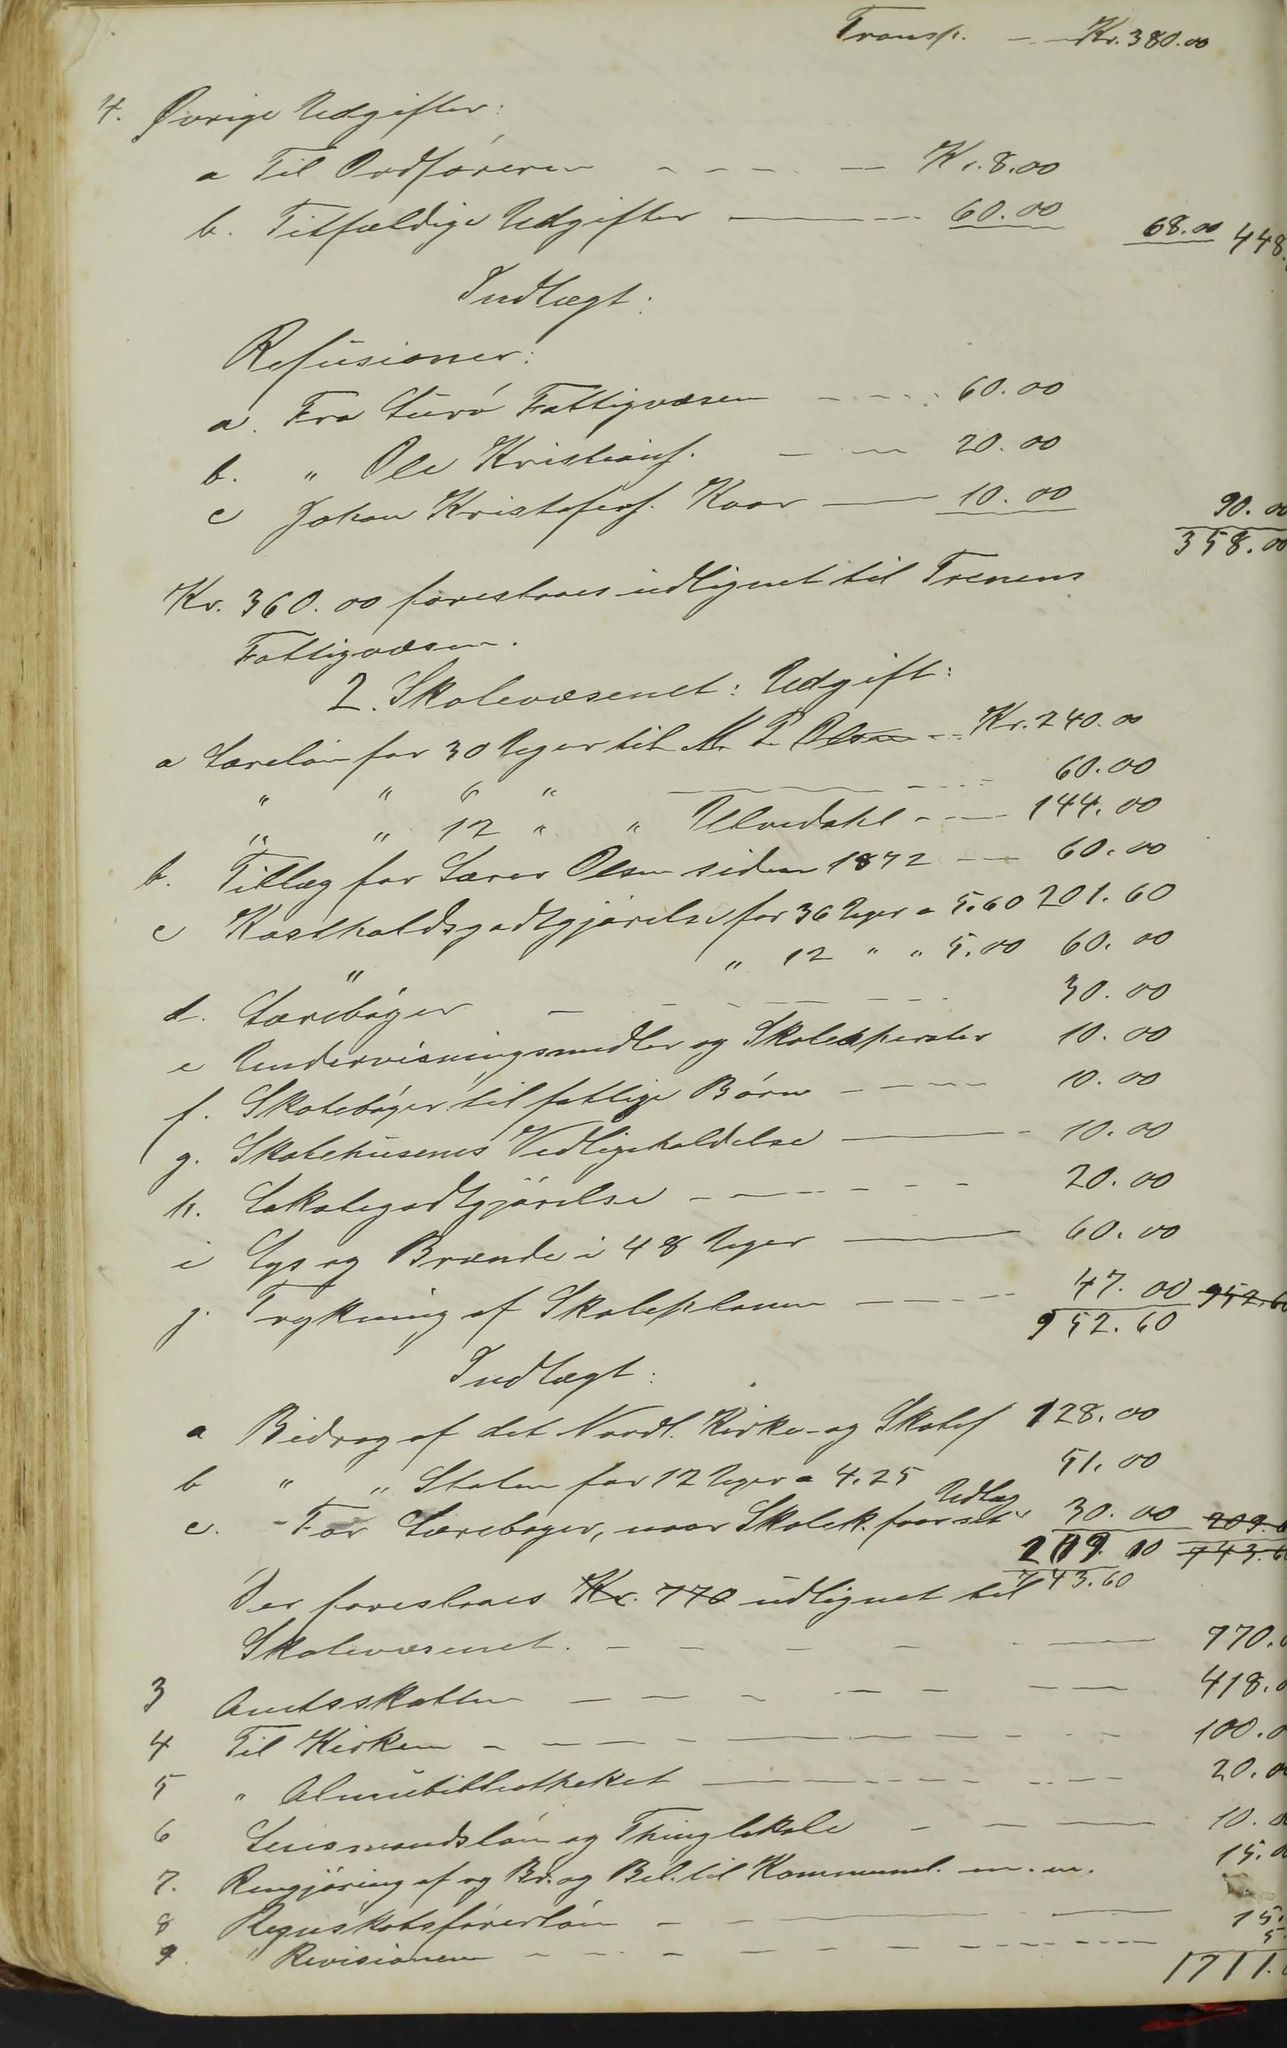 Transp. - - Kr. 380.00
4. Øvrige Udgifter:
a Til Ordføreren - - - - Kr. 8.00
b. Tilfældige Udgifter - - - 60.00 68.00 448.
Indtægt:
Refusioner:
a. Fra Lurø Fattigvæsen - - - 60.00
b. " Ole Kristians. - - 20.00
c Johan Kristofers. Kaar - 10.00 90.00
358.00
Kr. 360.00 foreslaaes udlignet til Trenens
Fattigvæsen.
2. Skolevæsenet: Udgift:
a Læreløn for 30 Uger til M. P. Olsen - Kr. 240.00
" " 6 " - - - 60.00
" " 12 " " Ulvedahl - - 144.00
b. Tillæg for Lærer Olsen siden 1872 - - 60.00
c Kostholdsgodtgjørelse for 36 Uger a 5.60 201.60
" " 12 " " 5.00 60.00
d. Lærebøger - - - - 30.00
e Undervisningsmidler og Skoleapparater 10.00
f. Skolebøger til fattige Børn - - - 10.00
g. Skolehusenes Vedligeholdelse - - 10.00
h. Lokalegodtgjørelse - - - - 20.00
i Lys og Brænde i 48 Uger - 60.00
j. Trykning af Skoleplanen - - - 47.00 952.60
952.60
Indtægt:
a Bidrag af det Nordl. Kirke- og Skolef 128.00
b " " Staten for 12 Uger a 4.25 51.00
Udlæg
c. - For Lærebøger, naar Skolek. faar sit 30.00 209.
209.00 743.6
743.60
Der foreslaaes Kr. 770 udlignet til
Skolevæsenet. - - - - 770.
3 Amtsskatten - - - - 418.0
4 Til Kirken - - - - 100.0
5 " Almuebibliotheket - - - 20.0
6 Lensmandsløn og Thinglokale - - - 10.0
7. Rengjøring af og Br. og Bel. til Kommunel. m. m. 15.0
8 Regnskabsførerløn - - - 15.
9. " Revisionen - - - - 5.
1711.